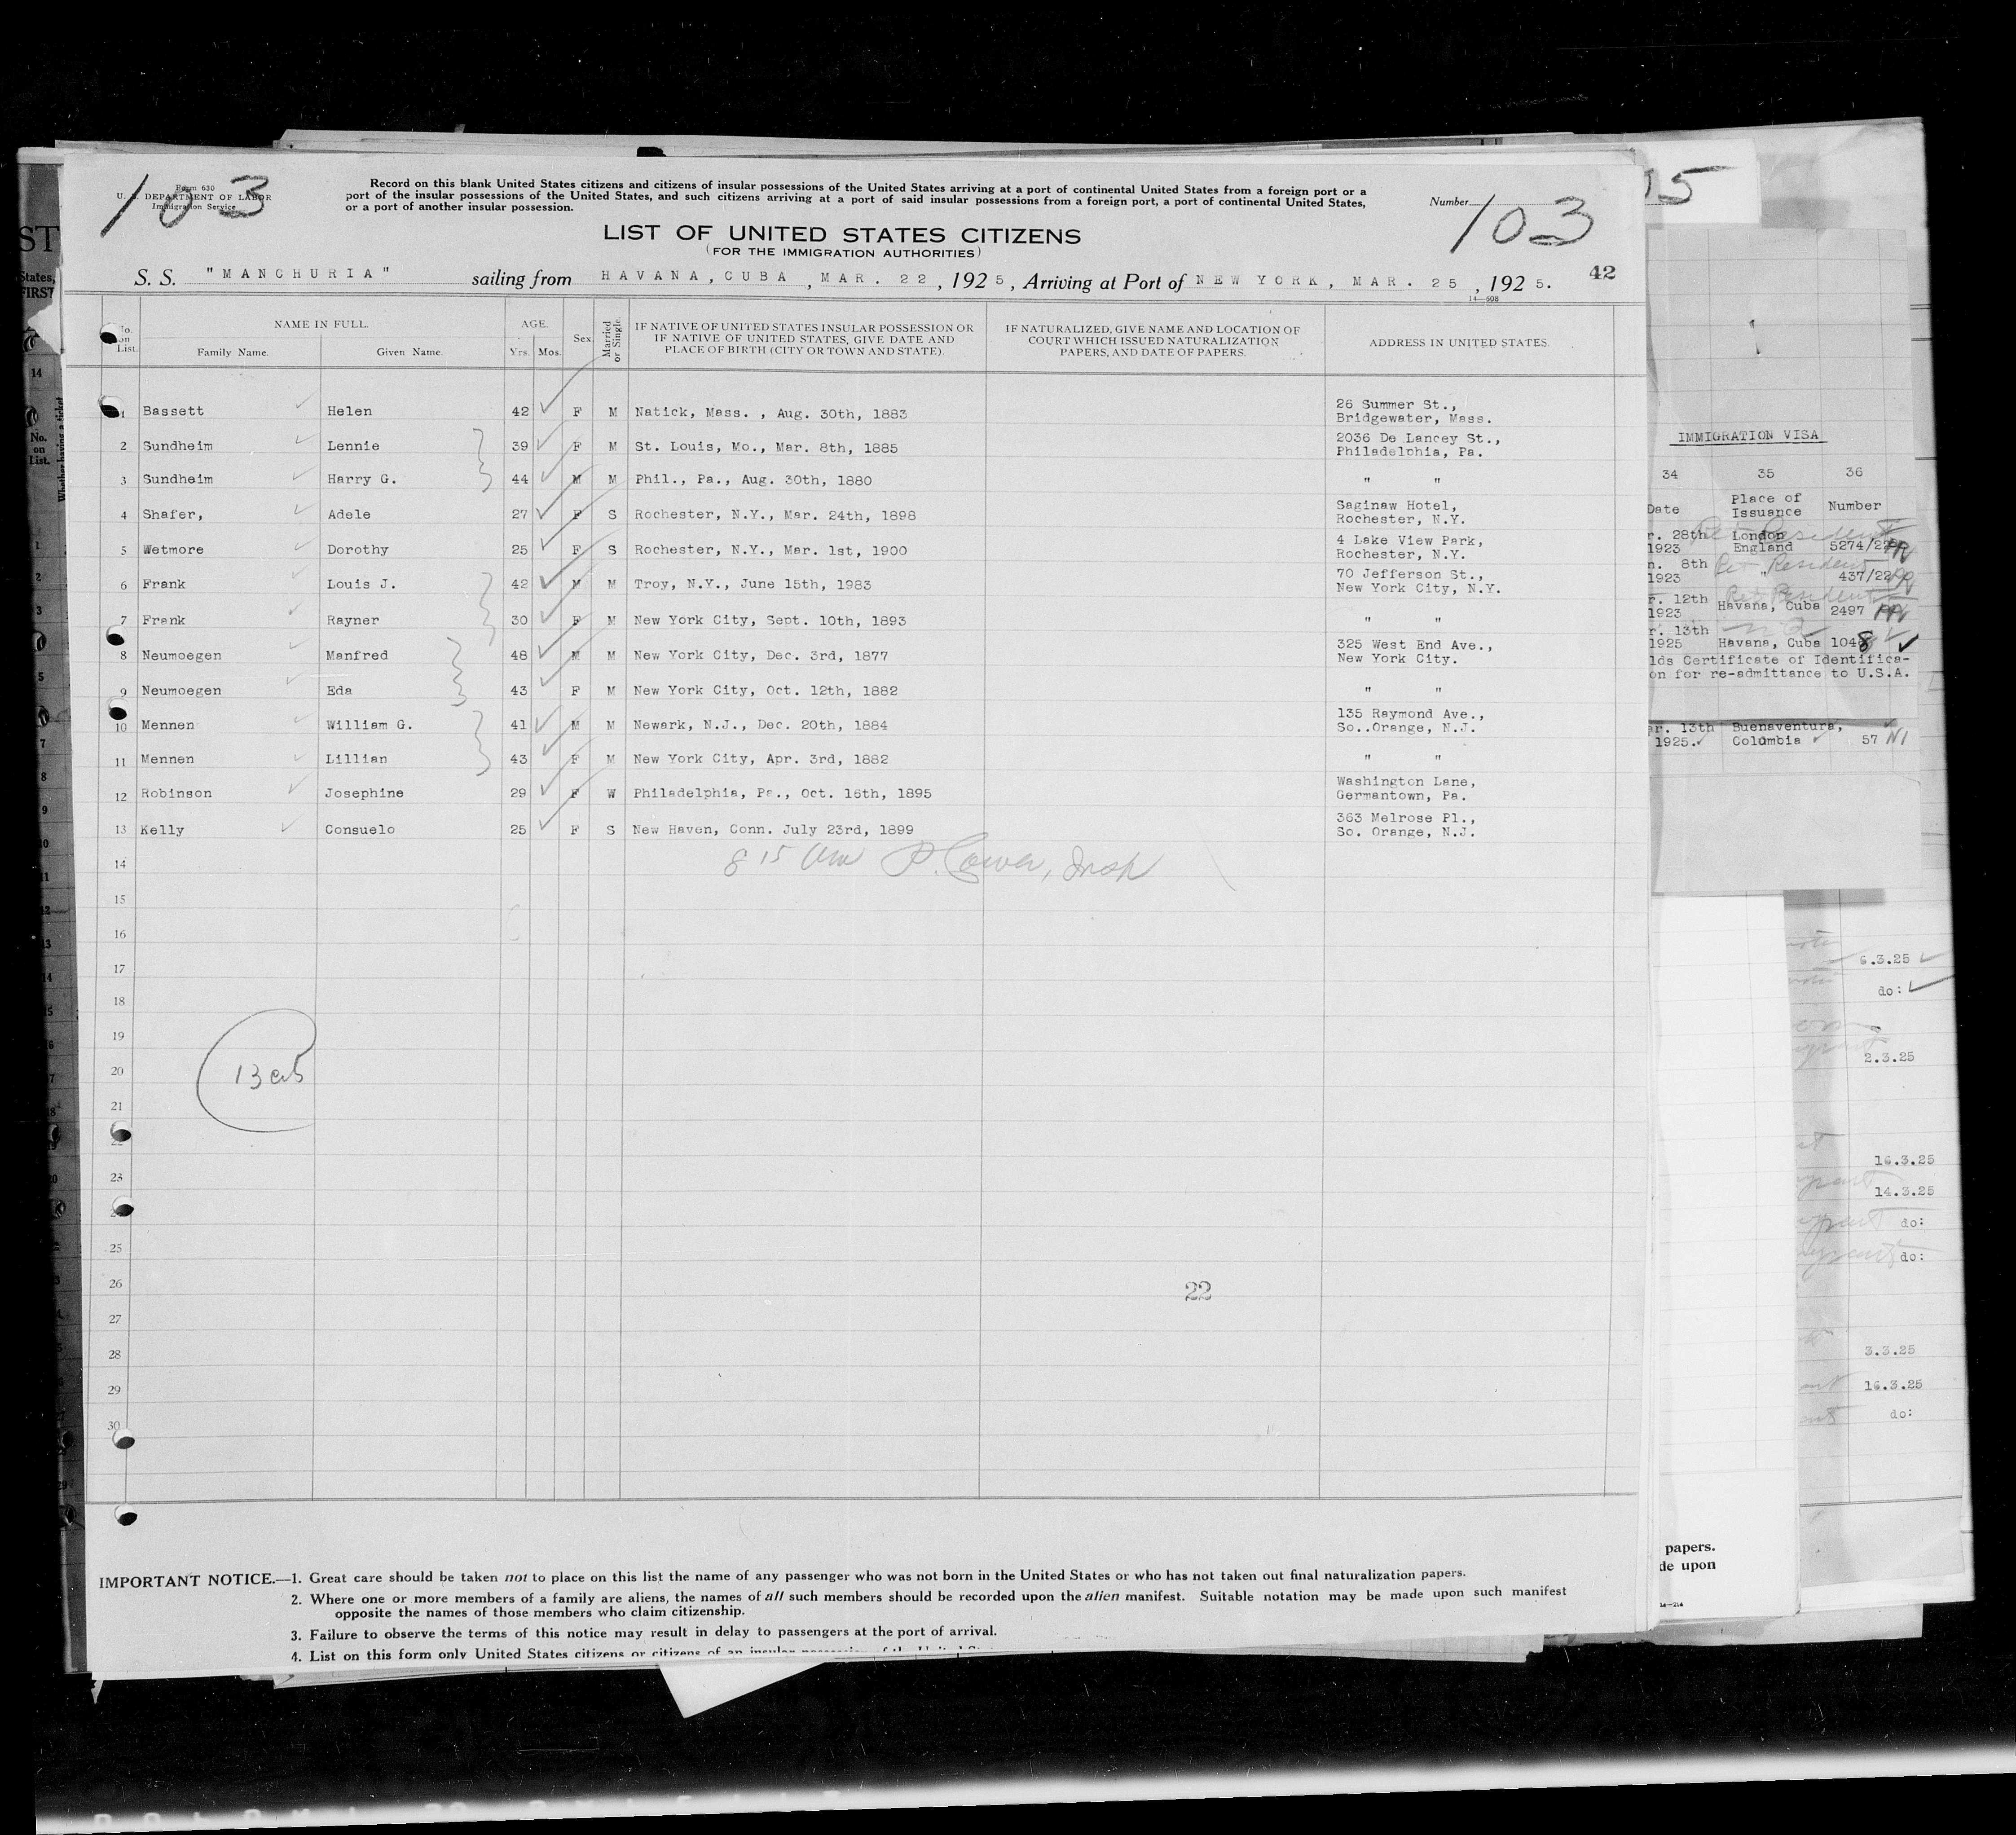 103
Form 630
U. S. DEPARTMENT OF LABOR
Immigration Service
Record on this blank United States citizens and citizens of insular possessions of the United States arriving at a port of continental United States from a foreign port or a
port of the insular possessions of the United States, and such citizens arriving at a port of said insular possessions from a foreign port, a port of continental United States,
or a port of another insular possession.
Number 103
LIST OF UNITED STATES CITIZENS
(FOR THE IMMIGRATION AUTHORITIES)
S. S. "MANCHURIA" sailing from HAVANA, CUBA, MAR. 22, 1925, Arriving at Port of NEW YORK, MAR. 25, 1925. 42
14-608
No. on List. NAME IN FULL. Family Name. Given Name. AGE. Yrs. Mos. Sex. Married or Single. IF NATIVE OF UNITED STATES INSULAR POSSESSION OR IF NATIVE OF UNITED STATES, GIVE DATE AND PLACE OF BIRTH (CITY OR TOWN AND STATE). IF NATURALIZED, GIVE NAME AND LOCATION OF COURT WHICH ISSUED NATURALIZATION PAPERS, AND DATE OF PAPERS. ADDRESS IN UNITED STATES.
1 Bassett Helen 42 F M Natick, Mass. , Aug. 30th, 1883 26 Summer St., Bridgewater, Mass.
2 Sundheim Lennie 39 F M St. Louis, Mo., Mar. 8th, 1885 2036 De Lancey St., Philadelphia, Pa.
3 Sundheim Harry G. 44 M M Phil., Pa., Aug. 30th, 1880 " "
4 Shafer, Adele 27 F S Rochester, N.Y., Mar. 24th, 1898 Saginaw Hotel, Rochester, N.Y.
5 Wetmore Dorothy 25 F S Rochester, N.Y., Mar. 1st, 1900 4 Lake View Park, Rochester, N.Y.
6 Frank Louis J. 42 M M Troy, N.Y., June 15th, 1983 70 Jefferson St., New York City, N.Y.
7 Frank Rayner 30 F M New York City, Sept. 10th, 1893 " "
8 Neumoegen Manfred 48 M M New York City, Dec. 3rd, 1877 325 West End Ave., New York City.
9 Neumoegen Eda 43 F M New York City, Oct. 12th, 1882 " "
10 Mennen William G. 41 M M Newark, N.J., Dec. 20th, 1884 135 Raymond Ave., So..Orange, N.J.
11 Mennen Lillian 43 F M New York City, Apr. 3rd, 1882 " "
12 Robinson Josephine 29 F W Philadelphia, Pa., Oct. 16th, 1895 Washington Lane, Germantown, Pa.
13 Kelly Consuelo 25 F S New Haven, Conn. July 23rd, 1899 363 Melrose Pl., So. Orange, N.J.
14 8 15 am
15
16
17
18
19
20
21
23
25
26
27
28
29
30
22
IMPORTANT NOTICE.—1. Great care should be taken not to place on this list the name of any passenger who was not born in the United States or who has not taken out final naturalization papers.
2. Where one or more members of a family are aliens, the names of all such members should be recorded upon the alien manifest. Suitable notation may be made upon such manifest
opposite the names of those members who claim citizenship.
3. Failure to observe the terms of this notice may result in delay to passengers at the port of arrival.
4. List on this form only United States citizens or citizens of an insular possession of the United
IMMIGRATION VISA
34 35 36
Date Place of Issuance Number
28th 1923 London England 5274/22
8th 1923 " 437/22
12th 1923 Havana, Cuba 2497
13th 1925 Havana, Cuba 1048
Certificate of Identifica-
for re-admittance to U.S.A.
13th 1925. Buenaventura, Columbia 57 NI
6.3.25
do:
2.3.25
16.3.25
14.3.25
do:
do:
3.3.25
16.3.25
do:
papers.
upon